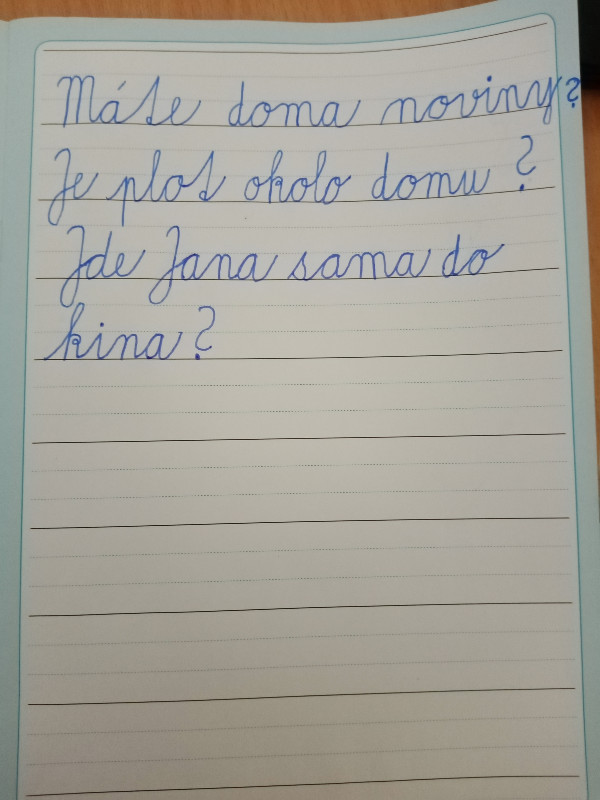 Máte doma noviny?
Je plot okolo domu?
Jde Jana sama do
kina?